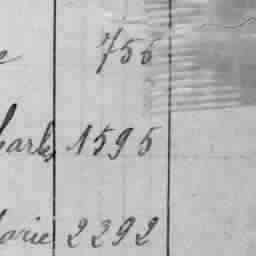 e 755
harles 1595
Marie 2292